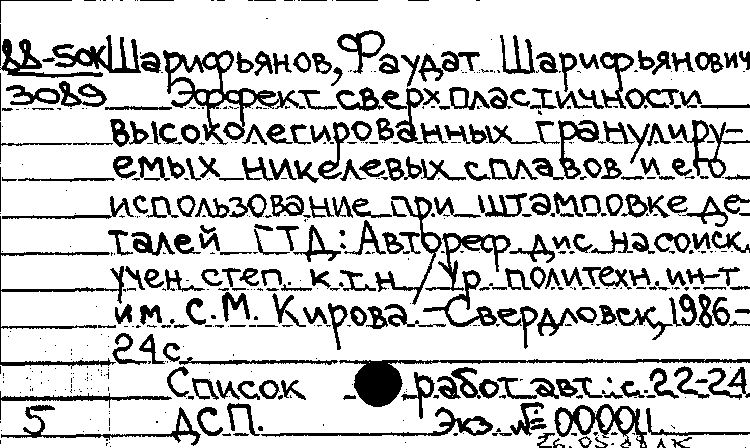 88-50К Шарифьянов, Фаудат Шарифьянович
3089 Эффект сверхпластичности
высоколегированных гранулиру-
емых никелевых сплавов и его
использование при штамповке де-
талей ГТД: Автореф. дис. на соиск.
учен. степ. к.т.н / Ур. политехн. ин-т
им. С.М. Кирова. - Свердловск, 1986-
24 с.
Список работ авт.: с. 22-24
5 ДСП. Экз. № 000011
26.05.88